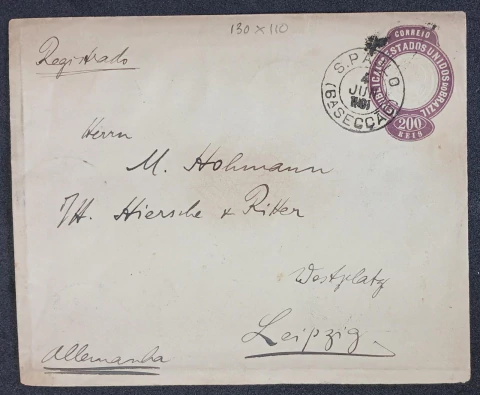 130 x 110
Registrado
CORREIO
ESTADOS UNIDOS DO BRAZIL
200
REIS
S. PAULO
4
JUN
(6A SECÇÃO)
Herrn
M. Hohmann
Hiersche & Ritter
Westplatz
Leipzig.
Allemanha